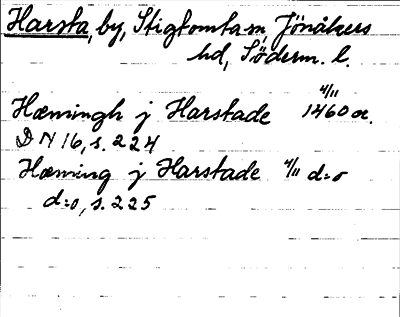 Harsta, by, Stigtomta sn, Jönåkers
hd, Söderm. l.
Hæmingh j Harstade 4/11 1460 or.
DN 16, s. 224
Hæming j Harstade 4/11 d:o
d:o, s. 225